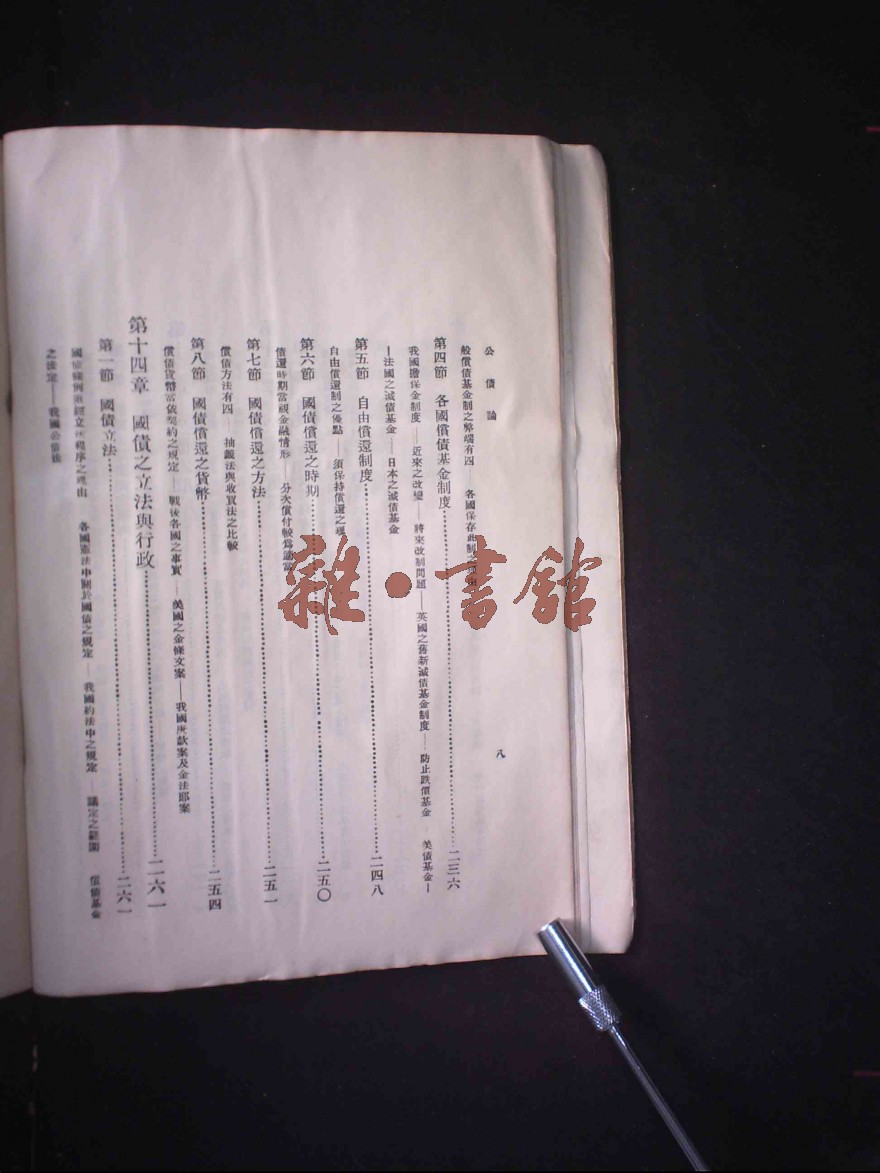 公債論
八
般償債基金制之弊端有四　各國保存此制之
第四節　各國償債基金制度……二三六
我國擔保金制度——近來之改變——將來改制問題——英國之舊新減債基金制度——防止跌價基金　美債基金—
—法國之減債基金—日本之減債基金
第五節　自由償還制度……二四八
自由償還制之優點——須保持償還之
第六節　國債償還之時期……二五〇
償還時期當視金融情形　分次償付較爲適當
第七節　國債償還之方法……二五一
償債方法有四——抽籤法與收買法之比較
第八節　國債償還之貨幣……二五四
償債貨幣當依契約之規定——戰後各國之事實——美國之金條文案——我國庚款案及金法郎案
第十四章　國債之立法與行政……二六一
第一節　國債立法……二六一
國債條例須經立法程序之理由　各國憲法中關於國債之規定　我國約法中之規定　議定之範圍　償債基金
之法定——我國公債法
雜·書館